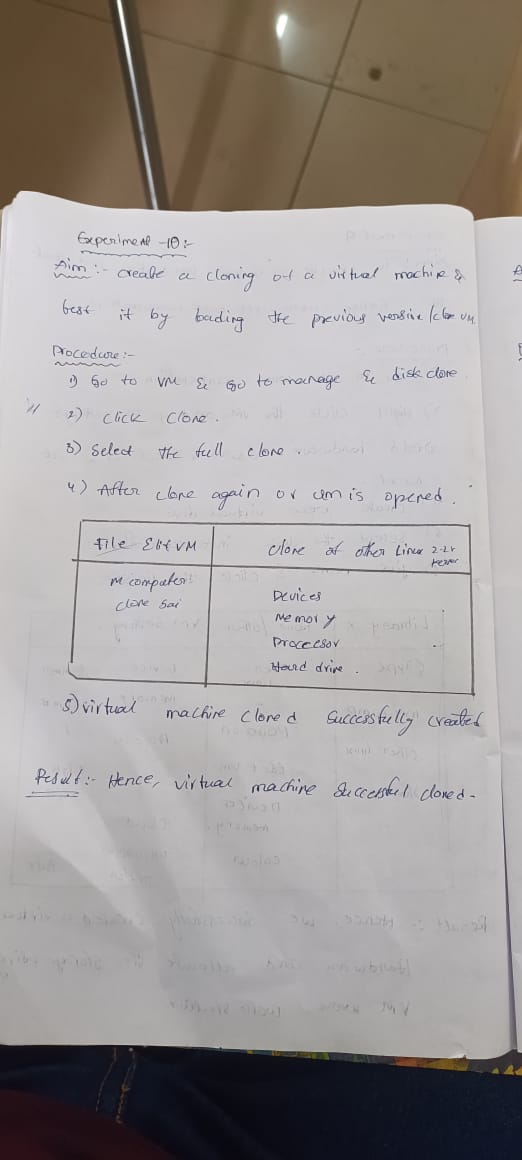 Experiment -10:-
Aim:- create a cloning of a virtual machine &
best it by loading the previous version /clone VM
Procedure:-
1) Go to VM & Go to manage & disk clone
2) Click Clone.
3) Select the full clone.
4) After clone again or um is opened.
File Edit VM
Clone of other Linux 2-2r
M computer
clone Sai
Devices
Memory
Processor
Hard drive.
5) virtual machine cloned successfully created
Result:- Hence, virtual machine successful cloned-